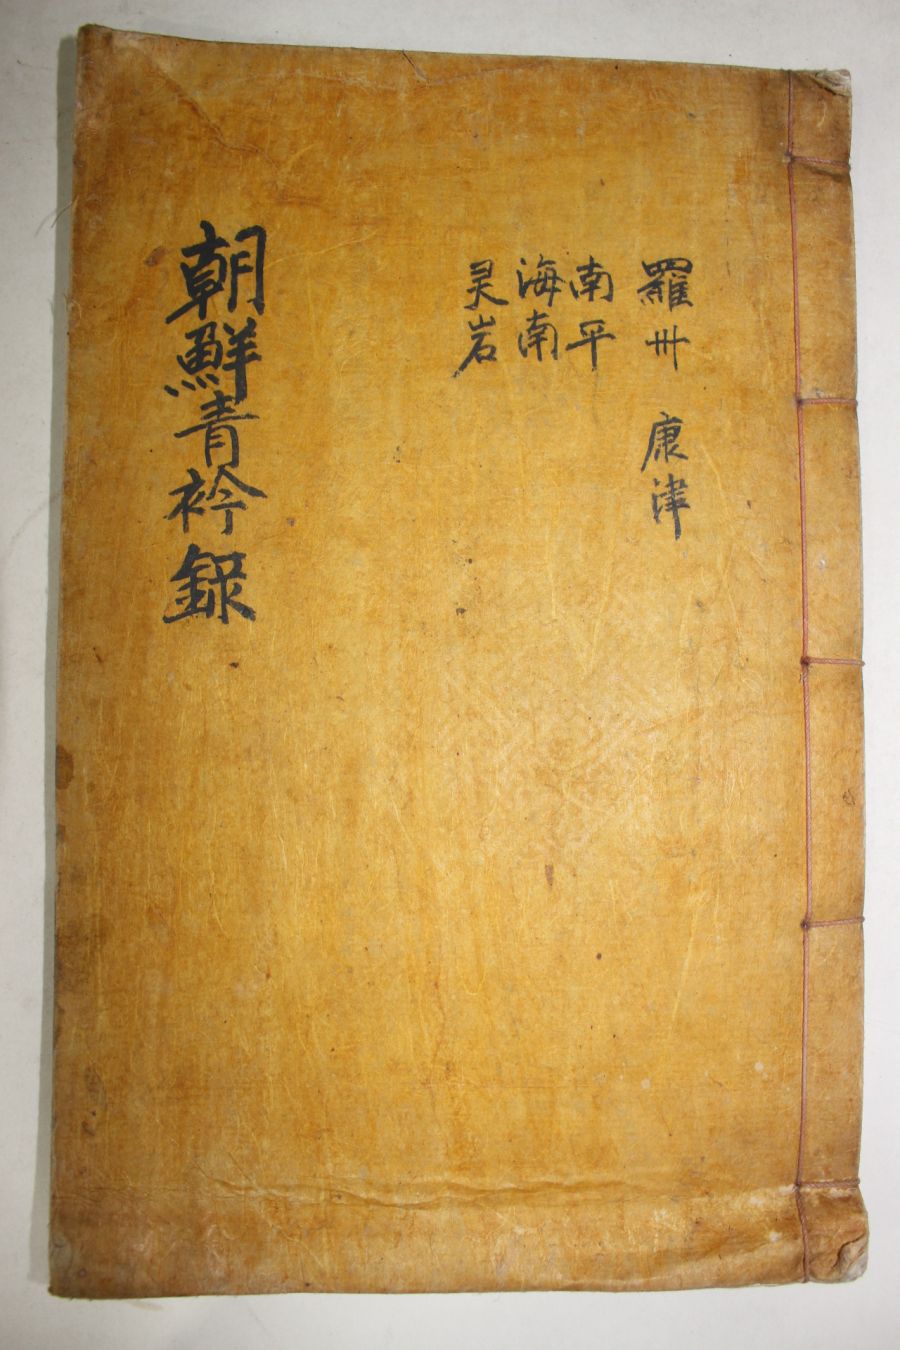 羅州 康津
南平
海南
灵岩
朝鮮青衿録